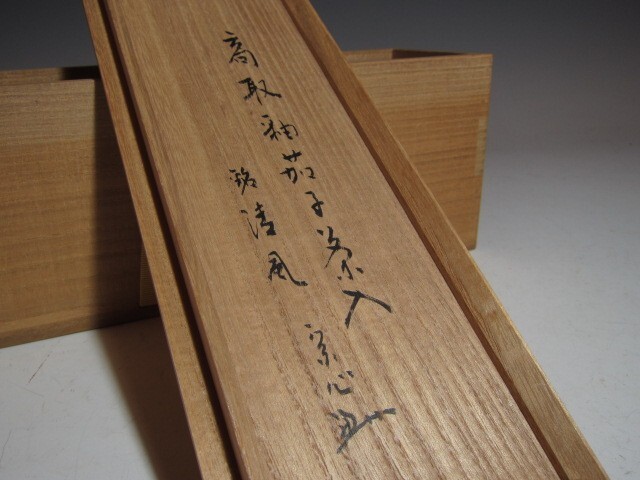 高取釉茄子茶入
銘清風
宗心